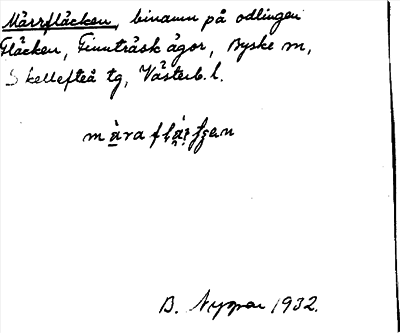 Märrfläcken, binamn på odlingen
Fläcken, Finnträsk ägor, Byske sn,
Skellefteå tg, Västerb. l.
B. Nyman 1932.